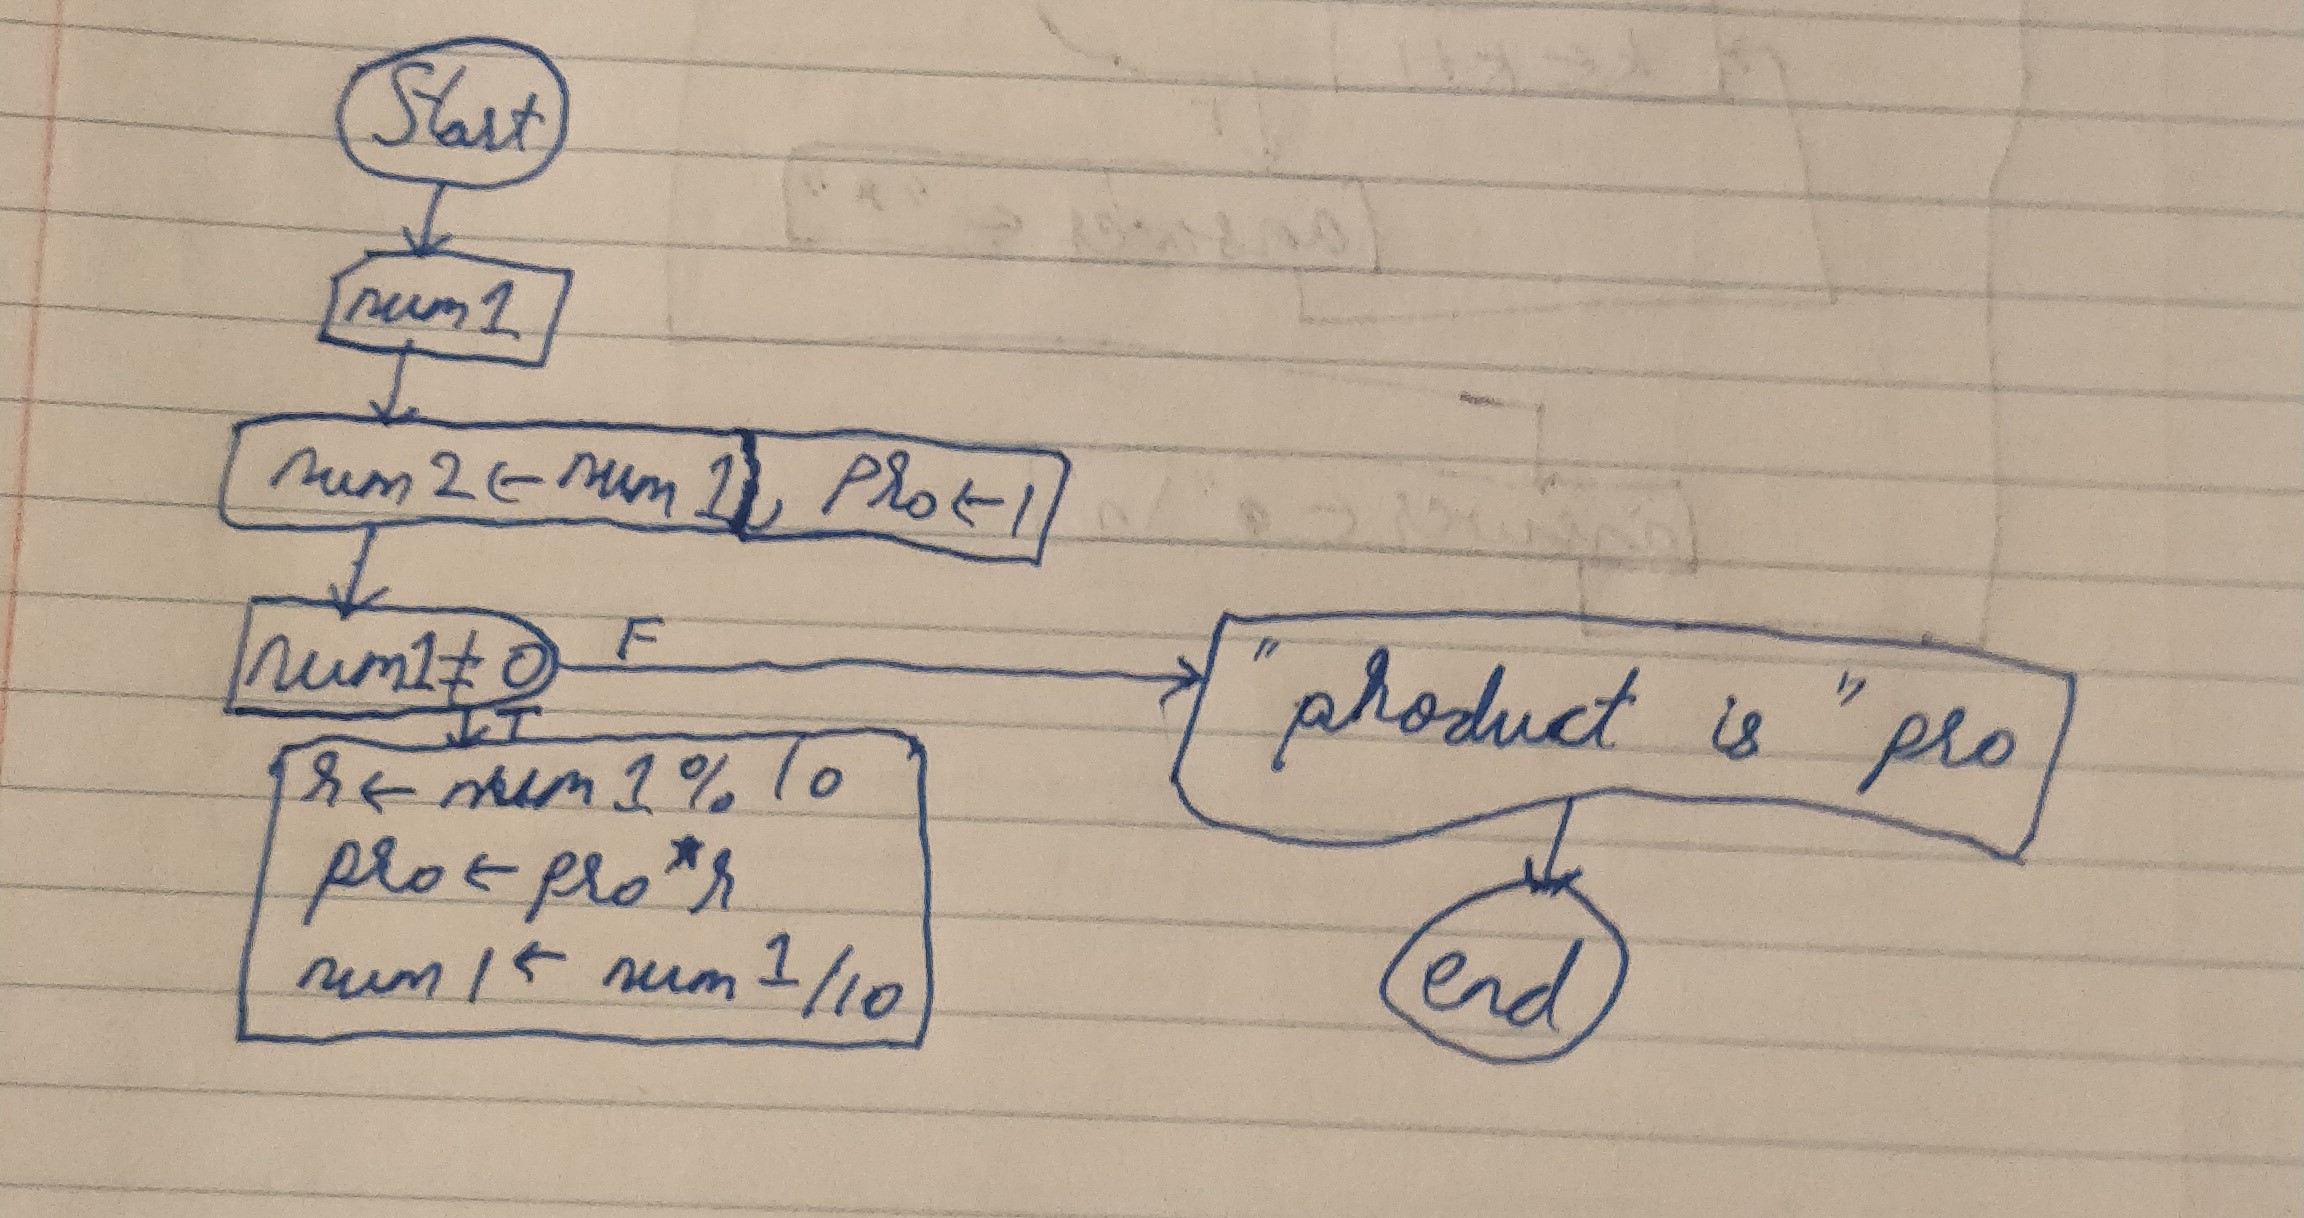 Start
num1
num2 ← num1, pro ← 1
num1 ≠ 0
F
T
r ← num1 % 10
pro ← pro * r
num1 ← num1/10
"product is" pro
end